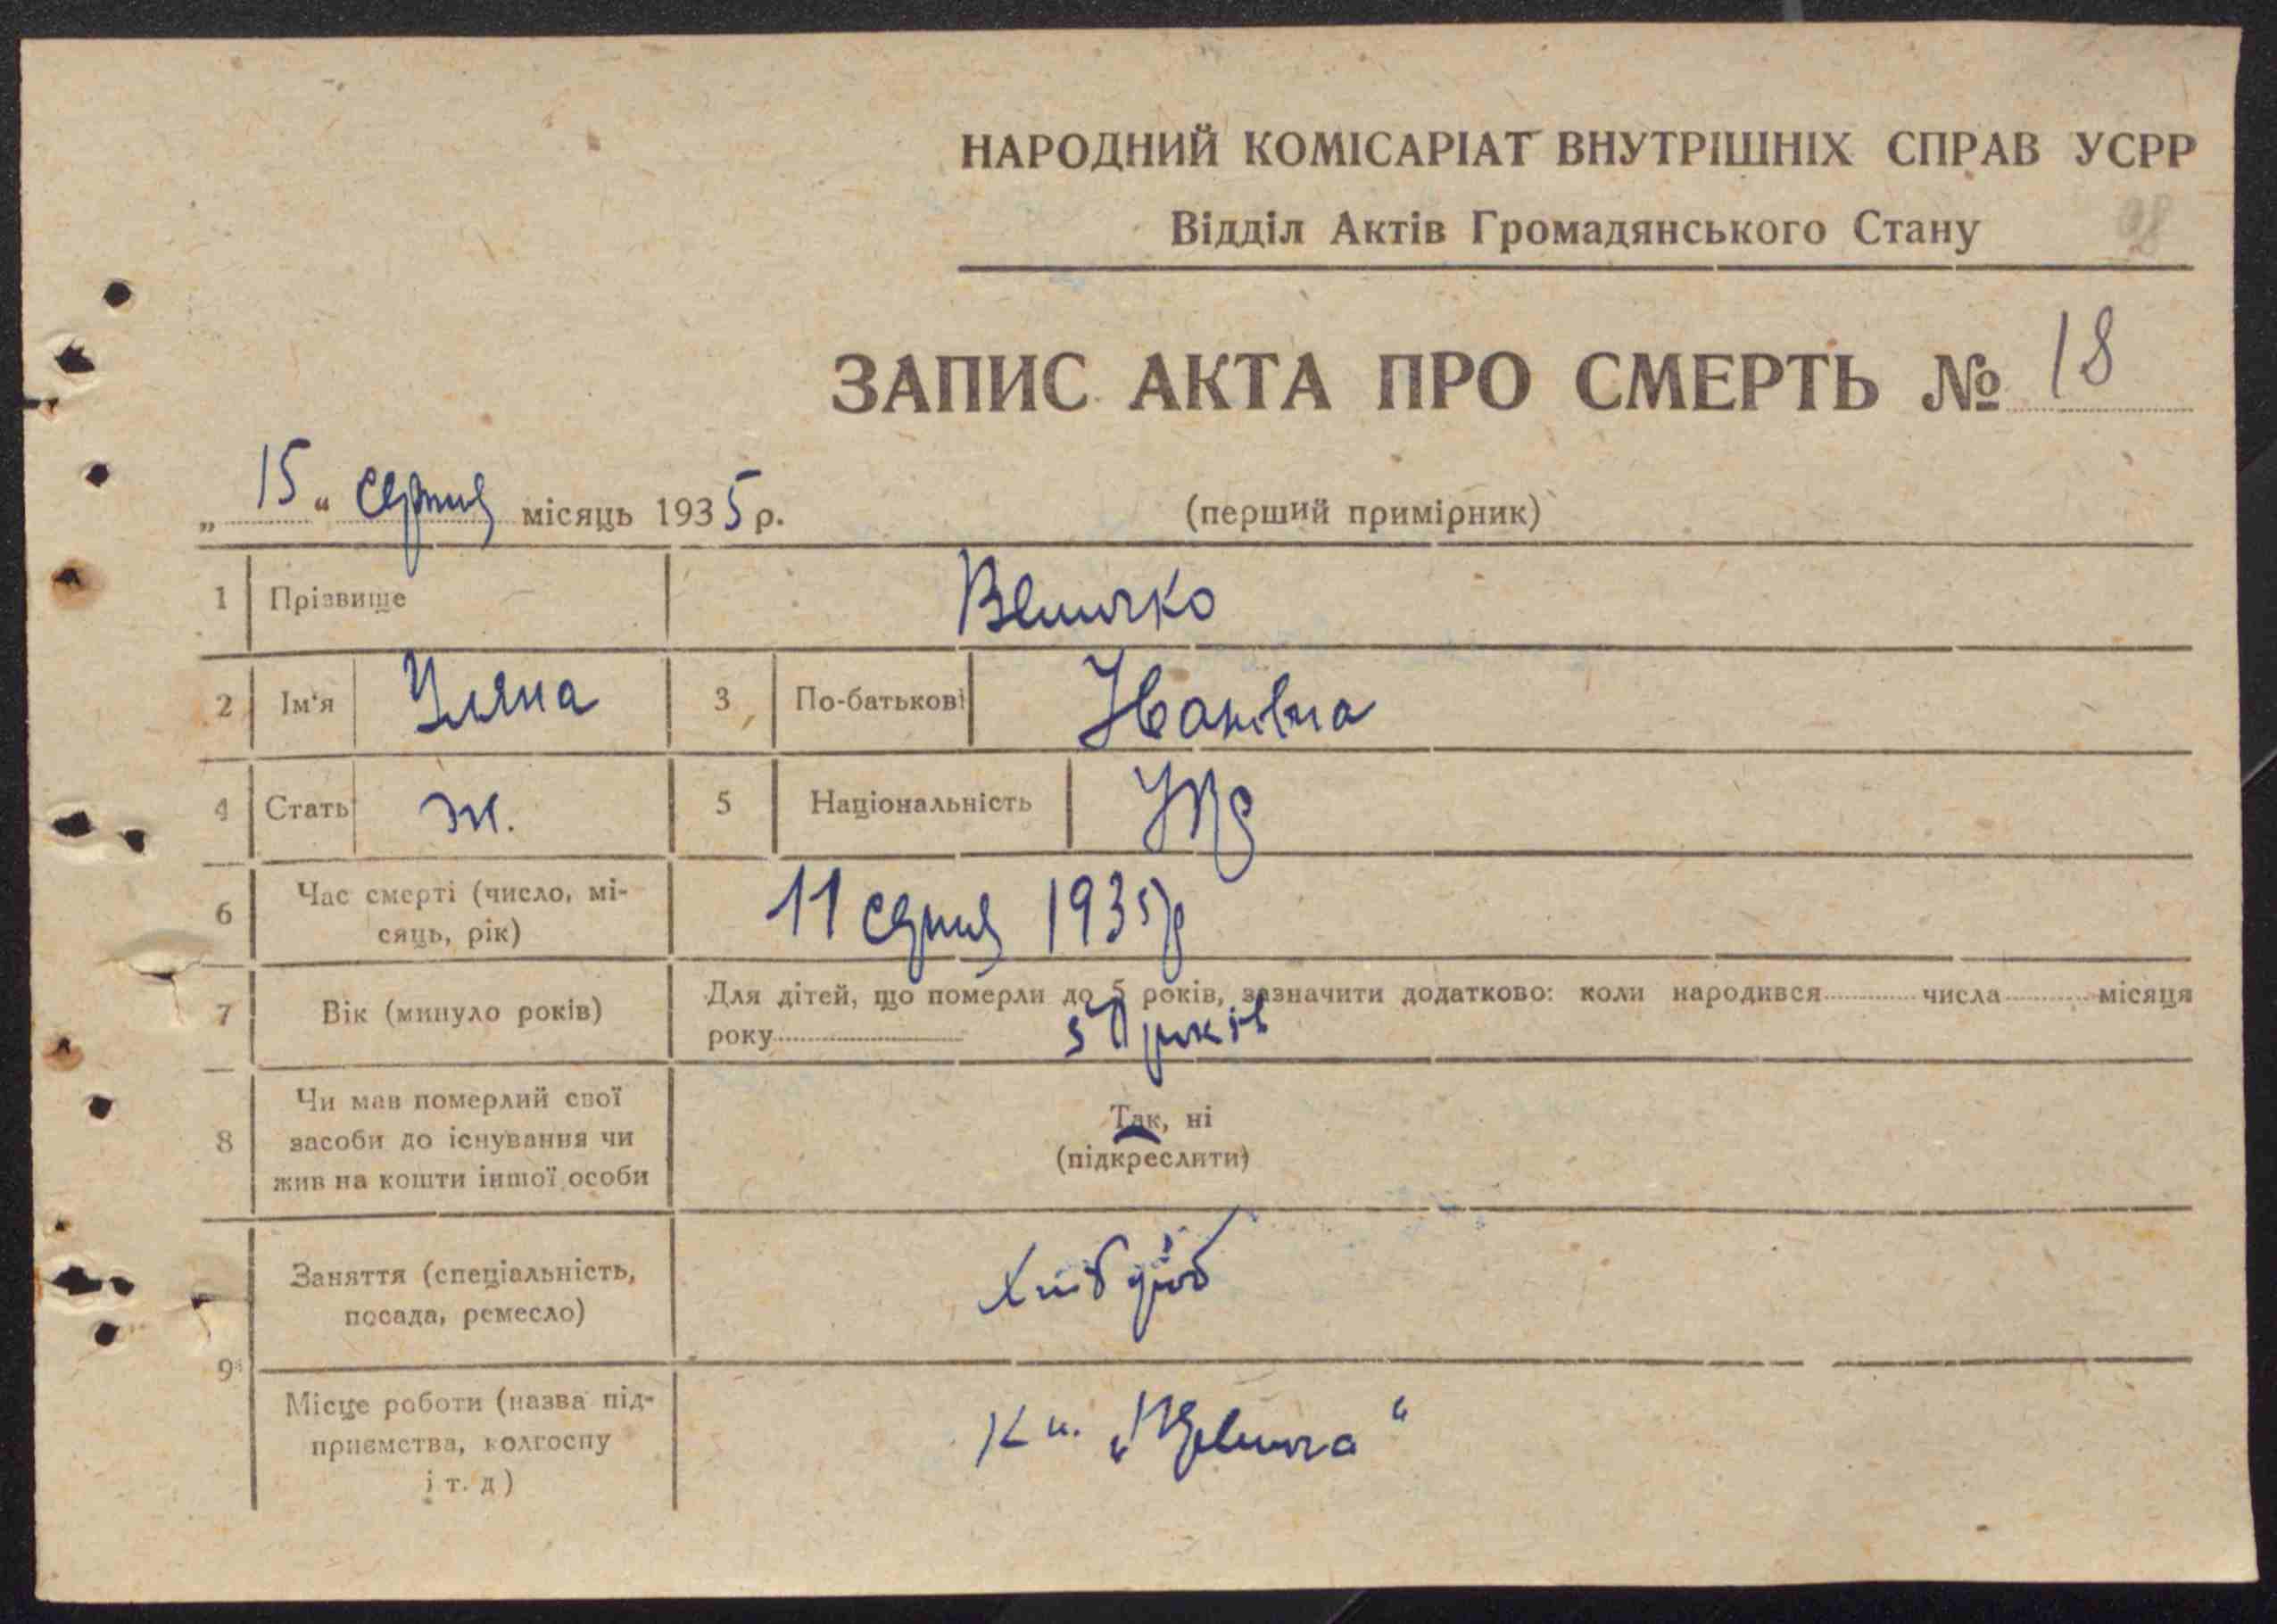 НАРОДНИЙ КОМІСАРІАТ ВНУТРІШНІХ СПРАВ УСРР
Відділ Актів Громадянського Стану
ЗАПИС АКТА ПРО СМЕРТЬ № 18
„15“ серпня місяць 1935 р. (перший примірник)
1 Прізвище Величко
2 Ім‘я Уляна 3 По-батькові Іванівна
4 Стать ж. 5 Національність Укр
6 Час смерті (число, мі-
сяць, рік) 11 серпня 1935 р
7 Вік (минуло років) Для дітей, що померли до 5 років, зазначити додатково: коли народився числа місяця
року 50 років
8 Чи мав померлий свої
засоби до існування чи
жив на кошти іншої особи
Так, ні
(підкреслити)
9 Заняття (спеціальність,
посада, ремесло) Хлібороб
Місце роботи (назва під-
приємства, колгоспу
і т. д)